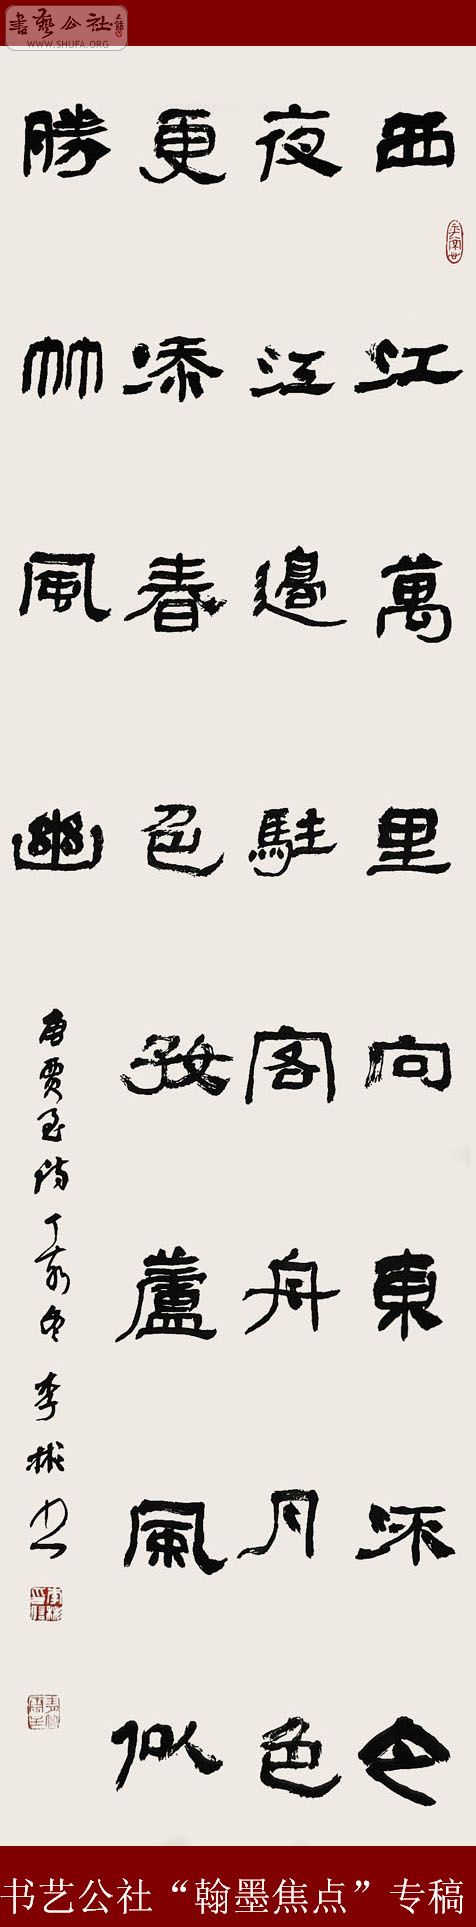 書藝公社
WWW.SHUFA.ORG
西江萬里向東流今
夜江邊駐客舟月色
更添春色好蘆風似
勝竹風幽
唐賈至詩丁亥冬李彬書
书艺公社“翰墨焦点”专稿